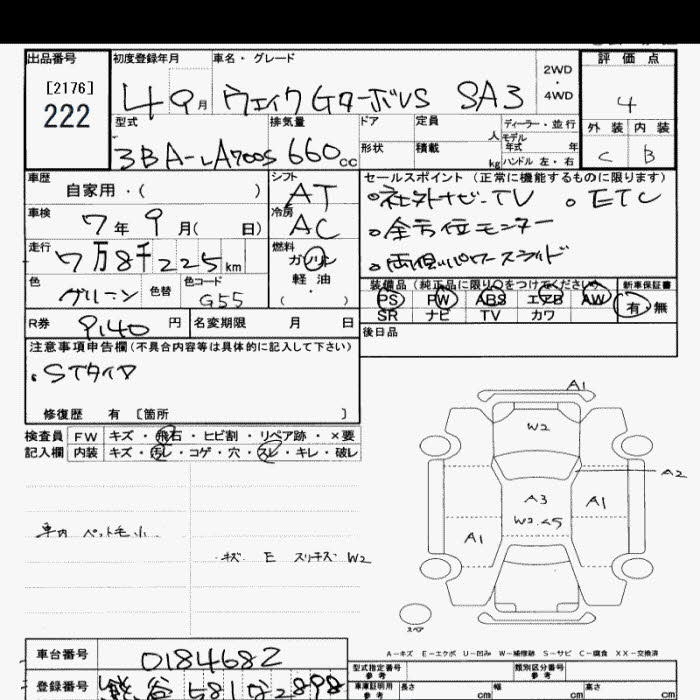 出品番号 初度登録年月 車名・グレード 2WD・4WD 評価点
[2176]
222
4 9月 ウェイク GターボVS SA3 4
型式 排気量 ドア 定員 人 ディーラー・並行 外装 内装
3BA-LA700S 660cc 形状 積載 kg モデル年式 年 ハンドル 左・右 C B
車歴 シフト セールスポイント(正常に機能するものに限ります)
自家用・( ) AT ・社外ナビ・TV ・ETC
車検 7年 9月( 日) 冷房 AC ・全方位モニター
走行 7万8千225km 燃料 ガソリン ・両側パワースライド
軽油・( )
色 グリーン 色替 色コード G55
装備品(純正品に限り○をつけてください) 新車保証書
PS PW ABS エアB AW 有・無
SR ナビ TV カワ
R券 9140円 名変期限 月 日 後日品
注意事項申告欄(不具合内容等は具体的に記入して下さい)
・Sタイヤ
修復歴 有 [箇所 ]
検査員 FW キズ・飛石・ヒビ割・リペア跡・×要
記入欄 内装 キズ・汚レ・コゲ・穴・スレ・キレ・破レ
A1
W2
A2
A3
A1
W2 U5
A1
車内 ペット毛小
キズ E スリキズ W2
スペア
A-キズ E-エクボ U-凹み W-補修跡 S-サビ C-腐食 XX-交換済
車台番号 0184682 型式指定番号 参考 類別区分番号 参考
登録番号 熊谷 581 な 2898 車庫証明用 参考 長さ cm 幅 cm 高さ cm